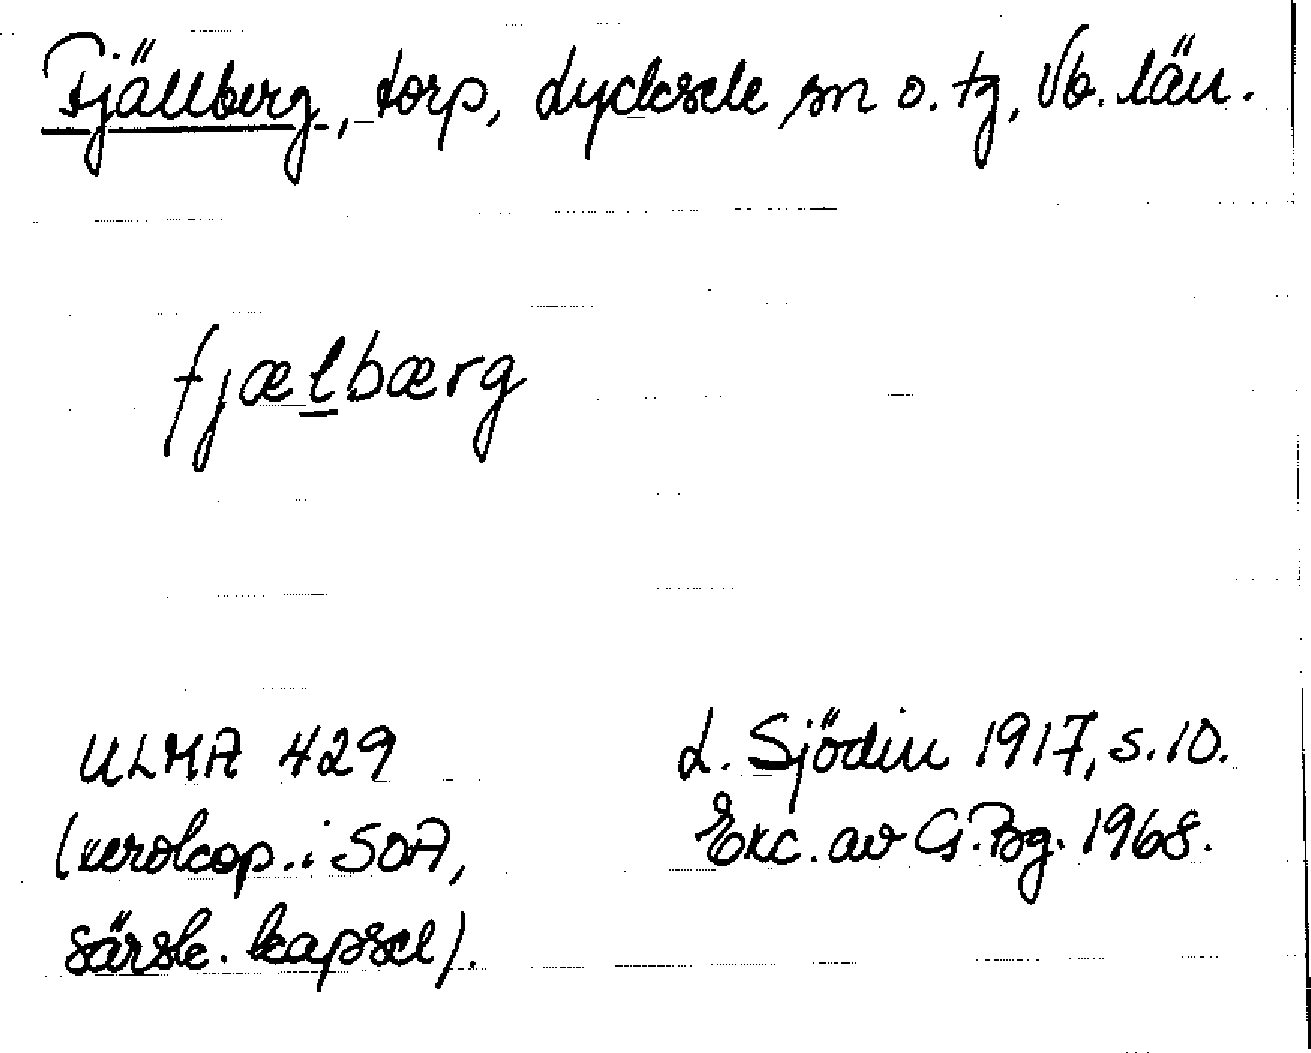 Fjällberg, torp, Lycksele sn o. tg, Vb. län.
fjælbærg
ULMA 429
L. Sjödin 1917, s. 10.
(xerokop. i SOA,
Exc. av G. Bg. 1968.
särsk. kapsel).